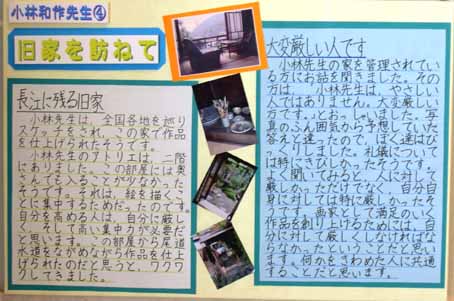 小林和作先生④
旧家を訪ねて
長江に残る旧家
小林先生は、全国各地を巡り
スケッチをされ、この家で作品
を仕上げられたそうです。
小林先生のアトリエは、二階
にありました。この部屋には奥
さんでも入ることが少なかった
そうです。それは、絵を描くこ
とに集中するためだったのです。
自分を高める人は、自分に厳し
く、そして高い集中力が必要だ
と思います。この部屋から尾道
水道をながめながら作品を仕上
げられたのだと思うと、ワクワ
クしてきました。
大変厳しい人です
小林先生の家を管理されてい
る方にお話を聞きました。その
方は、「小林先生は、やさしい
人ではありません。大変厳しい
方です。」とおっしゃいました。写
真のふん囲気から予想していた
答えと違ったので、ぼく達はび
っくりしました。礼儀について
は特にきびしかったそうです。
よく聞いてみると、人に対して
厳しかっただけでなく、自分自
身に対しては特に厳しかったそ
うです。画家として満足のいく
作品を創り上げるためには、自
分に対して厳しくしなければな
らなかったというのだと思い
ます。何かをきわめた人に共通
することだと思います。